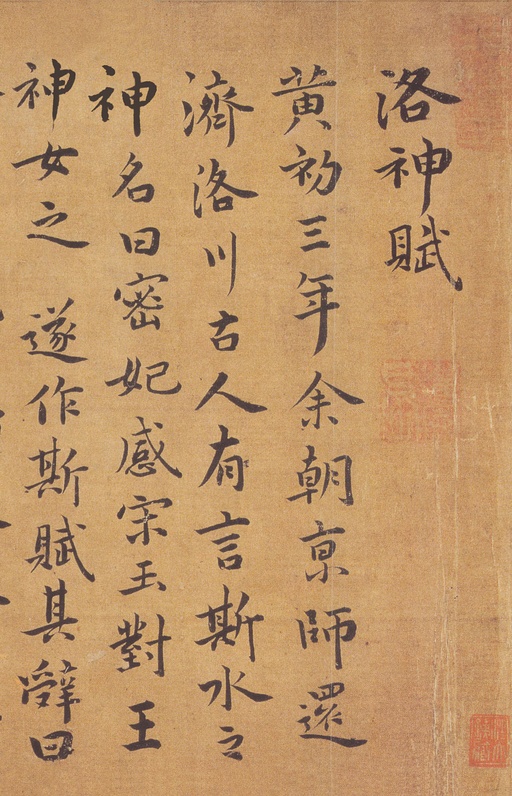 洛神賦
黄初三年余朝亰師還
濟洛川古人有言斯水之
神名曰密妃感宋玉對王
神女之 遂作斯賦其辭曰